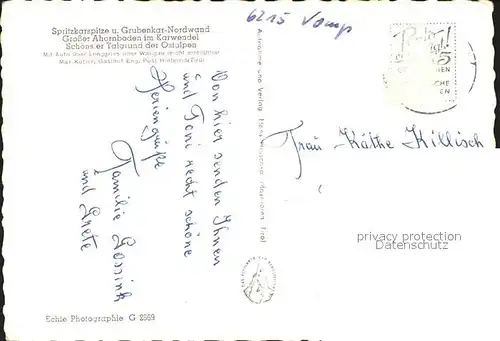 Spritzkarspitze u. Grubenkar-Nordwand
Großer Ahornboden im Karwendel
Schönster Talgrund der Ostalpen
Mit Auto über Lenggries oder Wallgau leicht erreichbar
Gasthof Eng, Post Hinterriß Tirol
6215 Vomp
Von hier senden Ihnen
und Toni recht schöne
Feriengrüße
Familie
und Grete
Aufnahme und Verlag Mayrhofen Tirol
Frau Käthe Killisch
privacy protection
Datenschutz
Echte Photographie G 2569